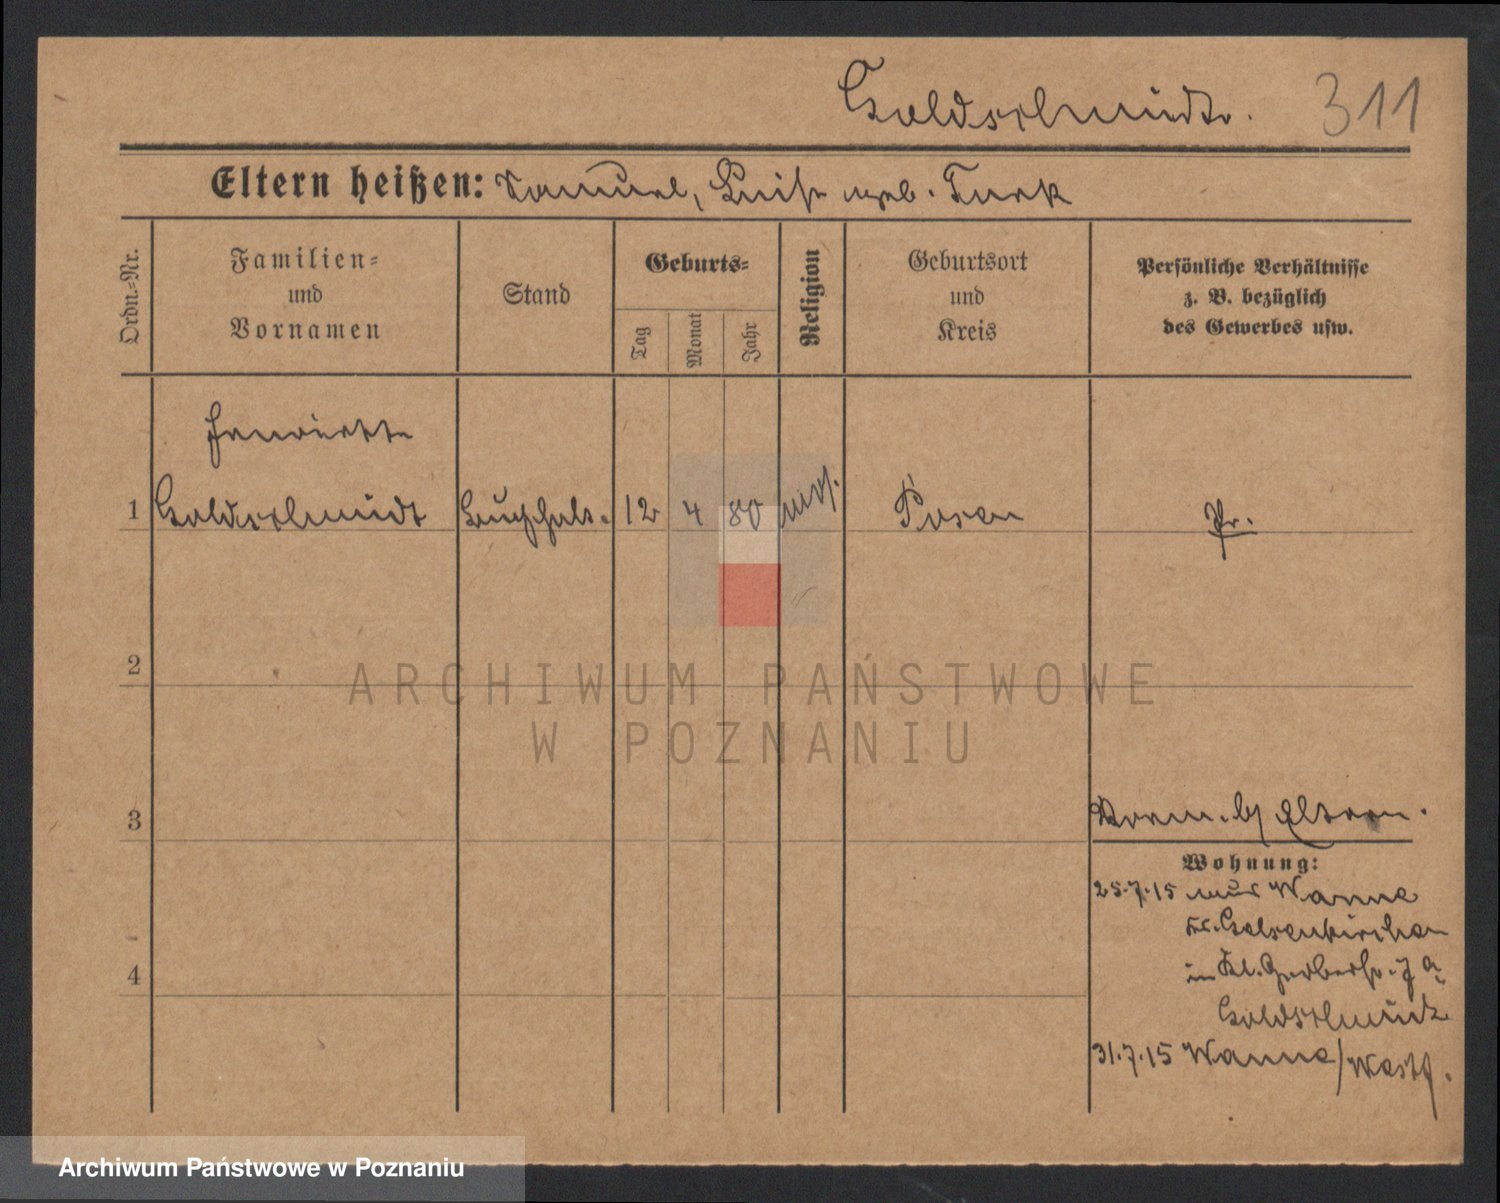 Goldschmidt.
311
Eltern heißen: Samuel, Luise geb. Turk
Ordn.-Nr.
Familien-
und
Vornamen
Stand
Geburts-
Tag
Monat
Jahr
Religion
Geburtsort
und
Kreis
Persönliche Verhältnisse
z. B. bezüglich
des Gewerbes usw.
Henriette
1 Goldschmidt Buchhalt. 12 4 80 mos. Posen Pr.
2
3
Verm. b/ Eltern.
Wohnung:
25.7.15 aus Wanne
Kr. Gelsenkirchen
in Kl. Gerberstr. 7a
Goldschmidt
4
31.7.15 Wanne/Westf.
ARCHIWUM PAŃSTWOWE
W POZNANIU
Archiwum Państwowe w Poznaniu